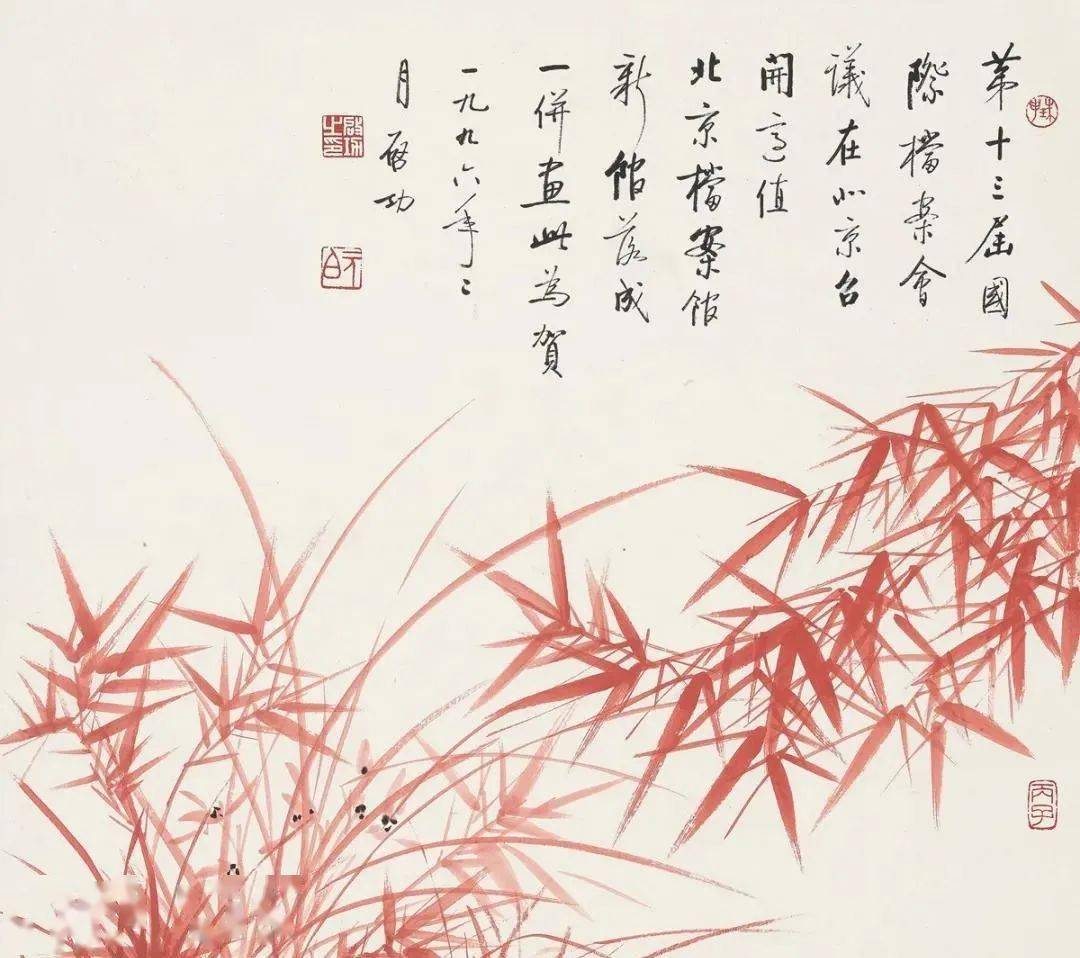 珠申
第十三屆國
際檔案會
議在北京召
開適值
北京檔案館
新館落成
一併畫此為賀
一九九六年二
月 啓功
啟功之印
元白
丙子